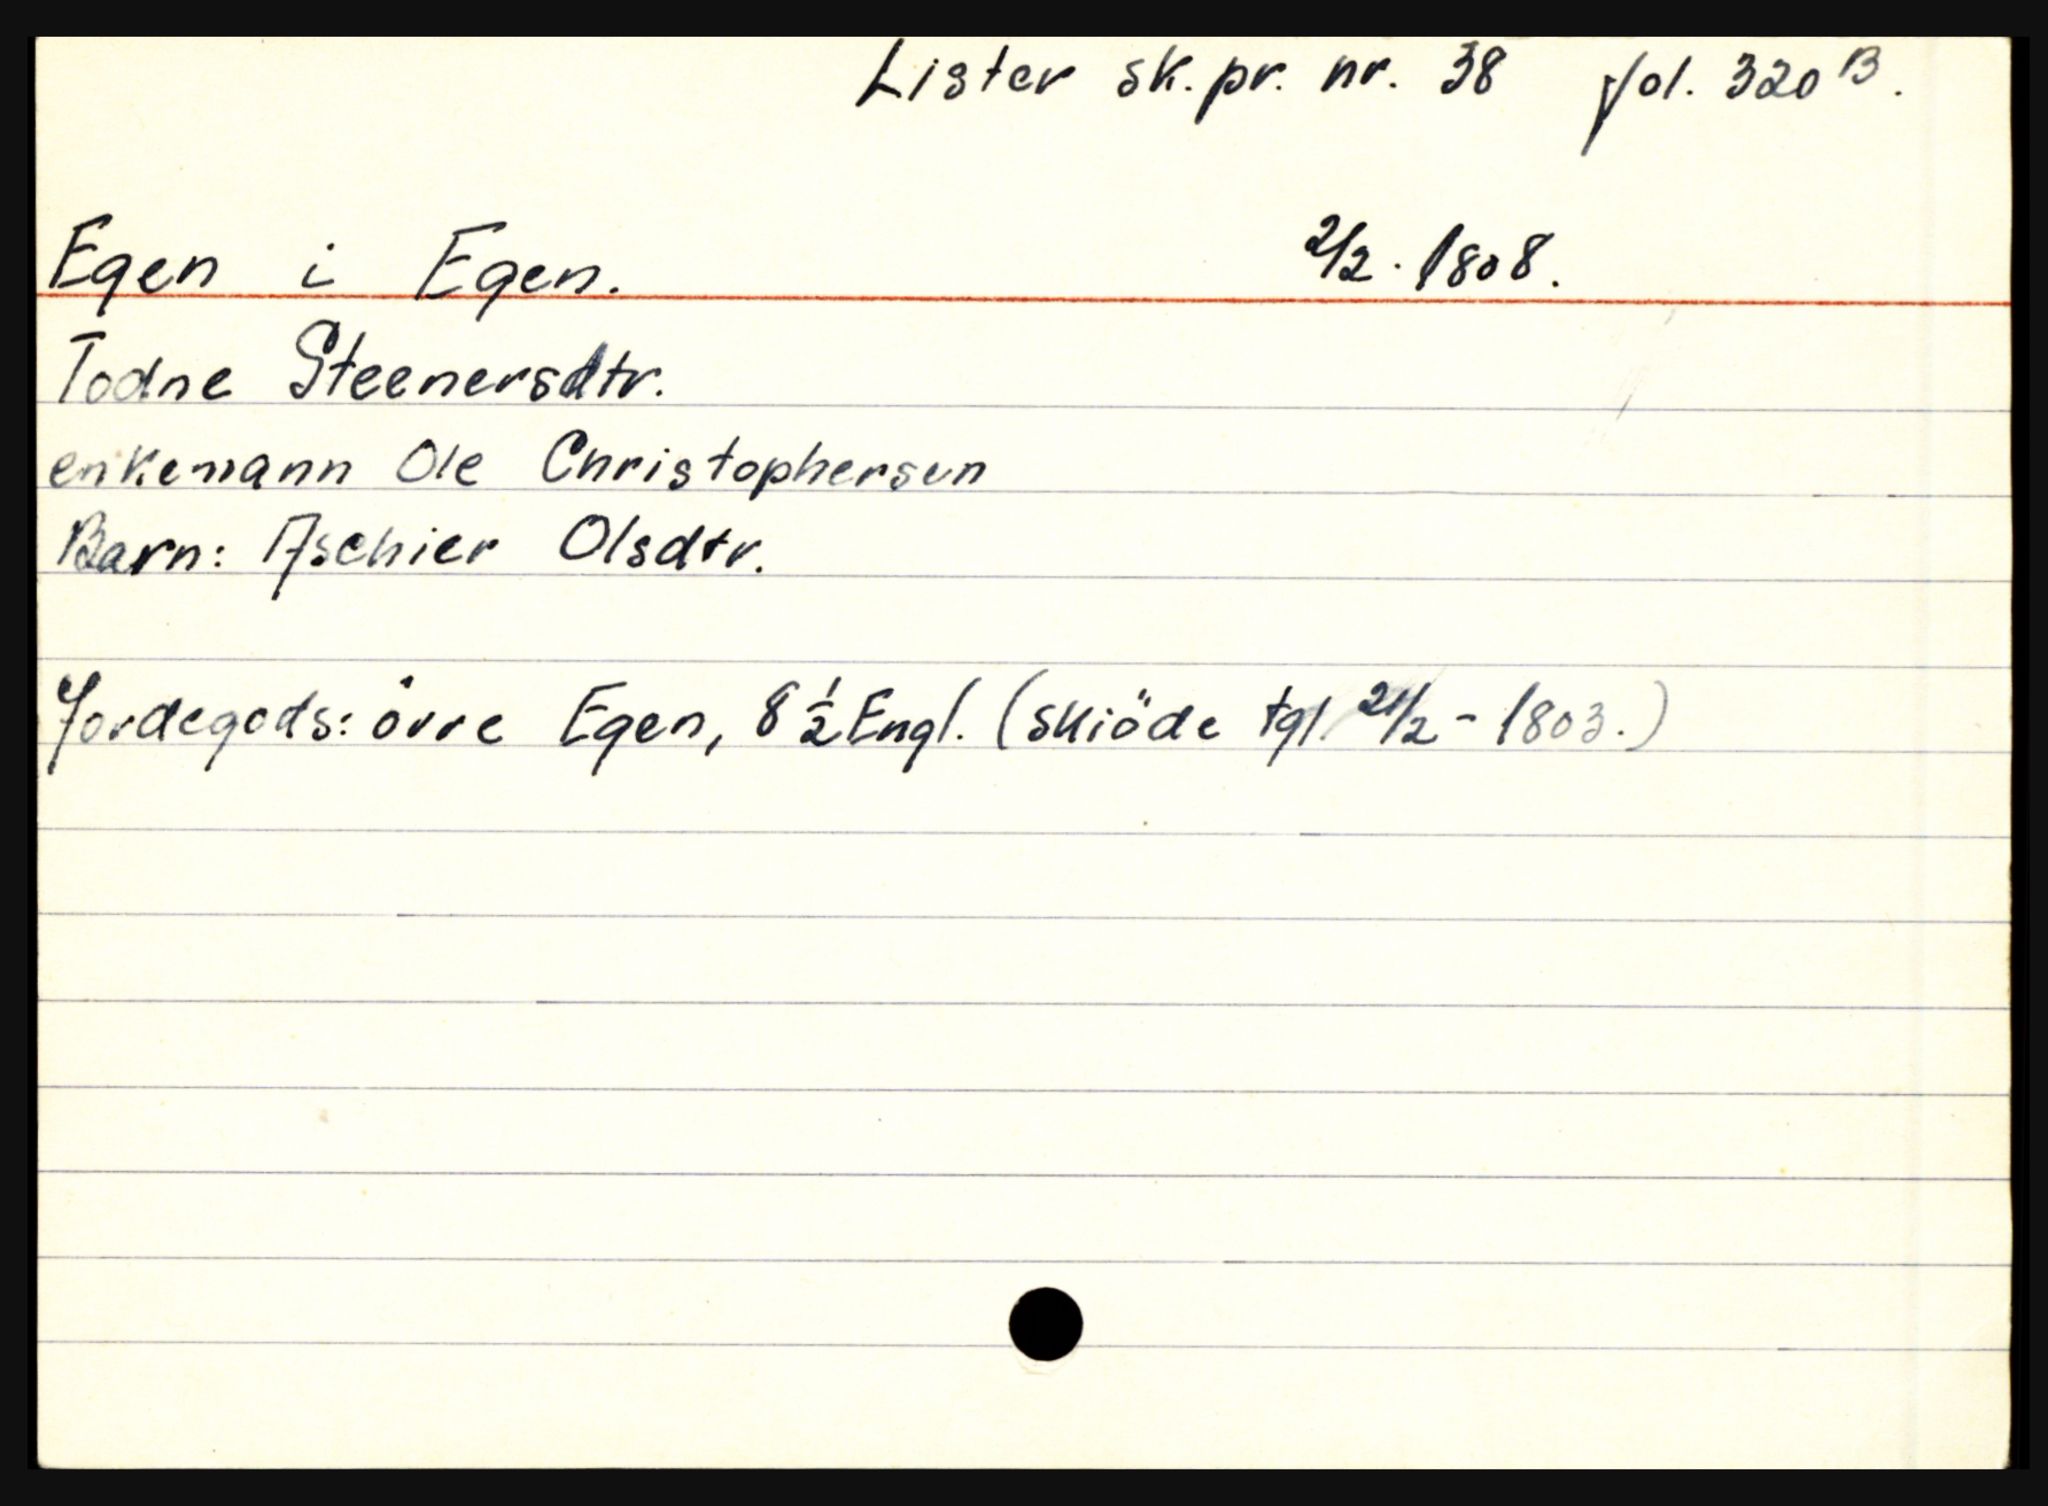 Lister sk.pr. nr. 38 fol. 320 B.
Egen i Egen. 2/2. 1808.
Todne Steenersdtr.
enkemann Ole Christophersen
Barn: Aschier Olsdtr.
Jordegods: övre Egen, 8 1/2 Engl. (skiöde tgl. 21/2 - 1803.)